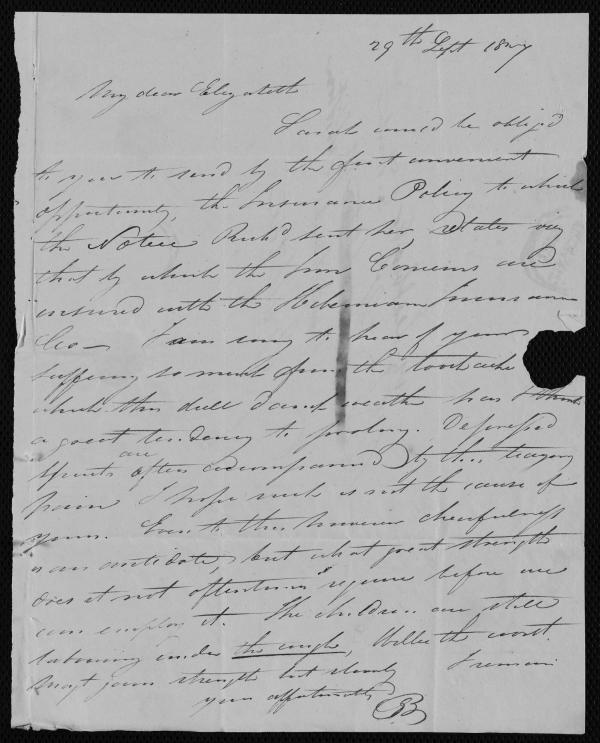 29th Sept 1827
My dear Elizabeth
Sarah would be obliged
to you to send by the first convenient
opportunity, the Insurance Policy to which
the Notice Richd sent her, relates viz
that by which the Iron Concerns are
insured with the Hibernian Insurance
Co— I am sorry to hear of your
suffering so much from the toothache
which this dull damp weather has I think
a great tendency to prolong. Depressed
Spirits are often accompanied by this teazing
pain I hope such is not the cause of
yours. Even to this however chearfulness
is an antidote, but what great strength
does it not oftentimes require before we
can employ it. The children are still
labouring under the cough, Willie the worst.
gains strength but slowly I remain
your affectionately